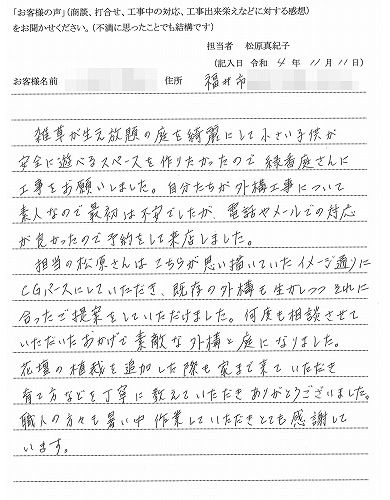 「お客様の声」(商談、打合せ、工事中の対応、工事出来栄えなどに対する感想)
をお聞かせください。(不満に思ったことでも結構です)
担当者　松原真紀子
(記入日　令和　4年　11月　11日)
お客様名前　住所　福井市
雑草が生え放題の庭を綺麗にして小さい子供が
安全に遊べるスペースを作りたかったので 緑香庭さんに
工事をお願いしました。自分たちが外構工事について
素人なので最初は不安でしたが、電話やメールでの対応
が良かったので予約をして来店しました。
担当の松原さんはこちらが思い描いていたイメージ通りに
CGパースにしていただき、既存の外構も生かしつつそれに
合ったご提案をしていただけました。何度も相談させて
いただいたおかげで素敵な外構と庭になりました。
花壇の植栽を追加した際も家まで来ていただき
育て方などを丁寧に教えていただきありがとうございました。
職人の方々も暑い中 作業していただきとても感謝して
います。